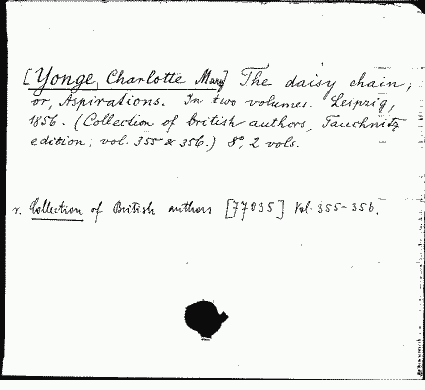 [Yonge, Charlotte Mary] The daisy chain;
or, Aspirations. In two volumes. Leipzig,
1856. (Collection of british authors, Tauchnitz
edition; vol. 355 & 356.) 8°, 2 vols.
v. Collection of British authors [77035] Vol. 355-356.